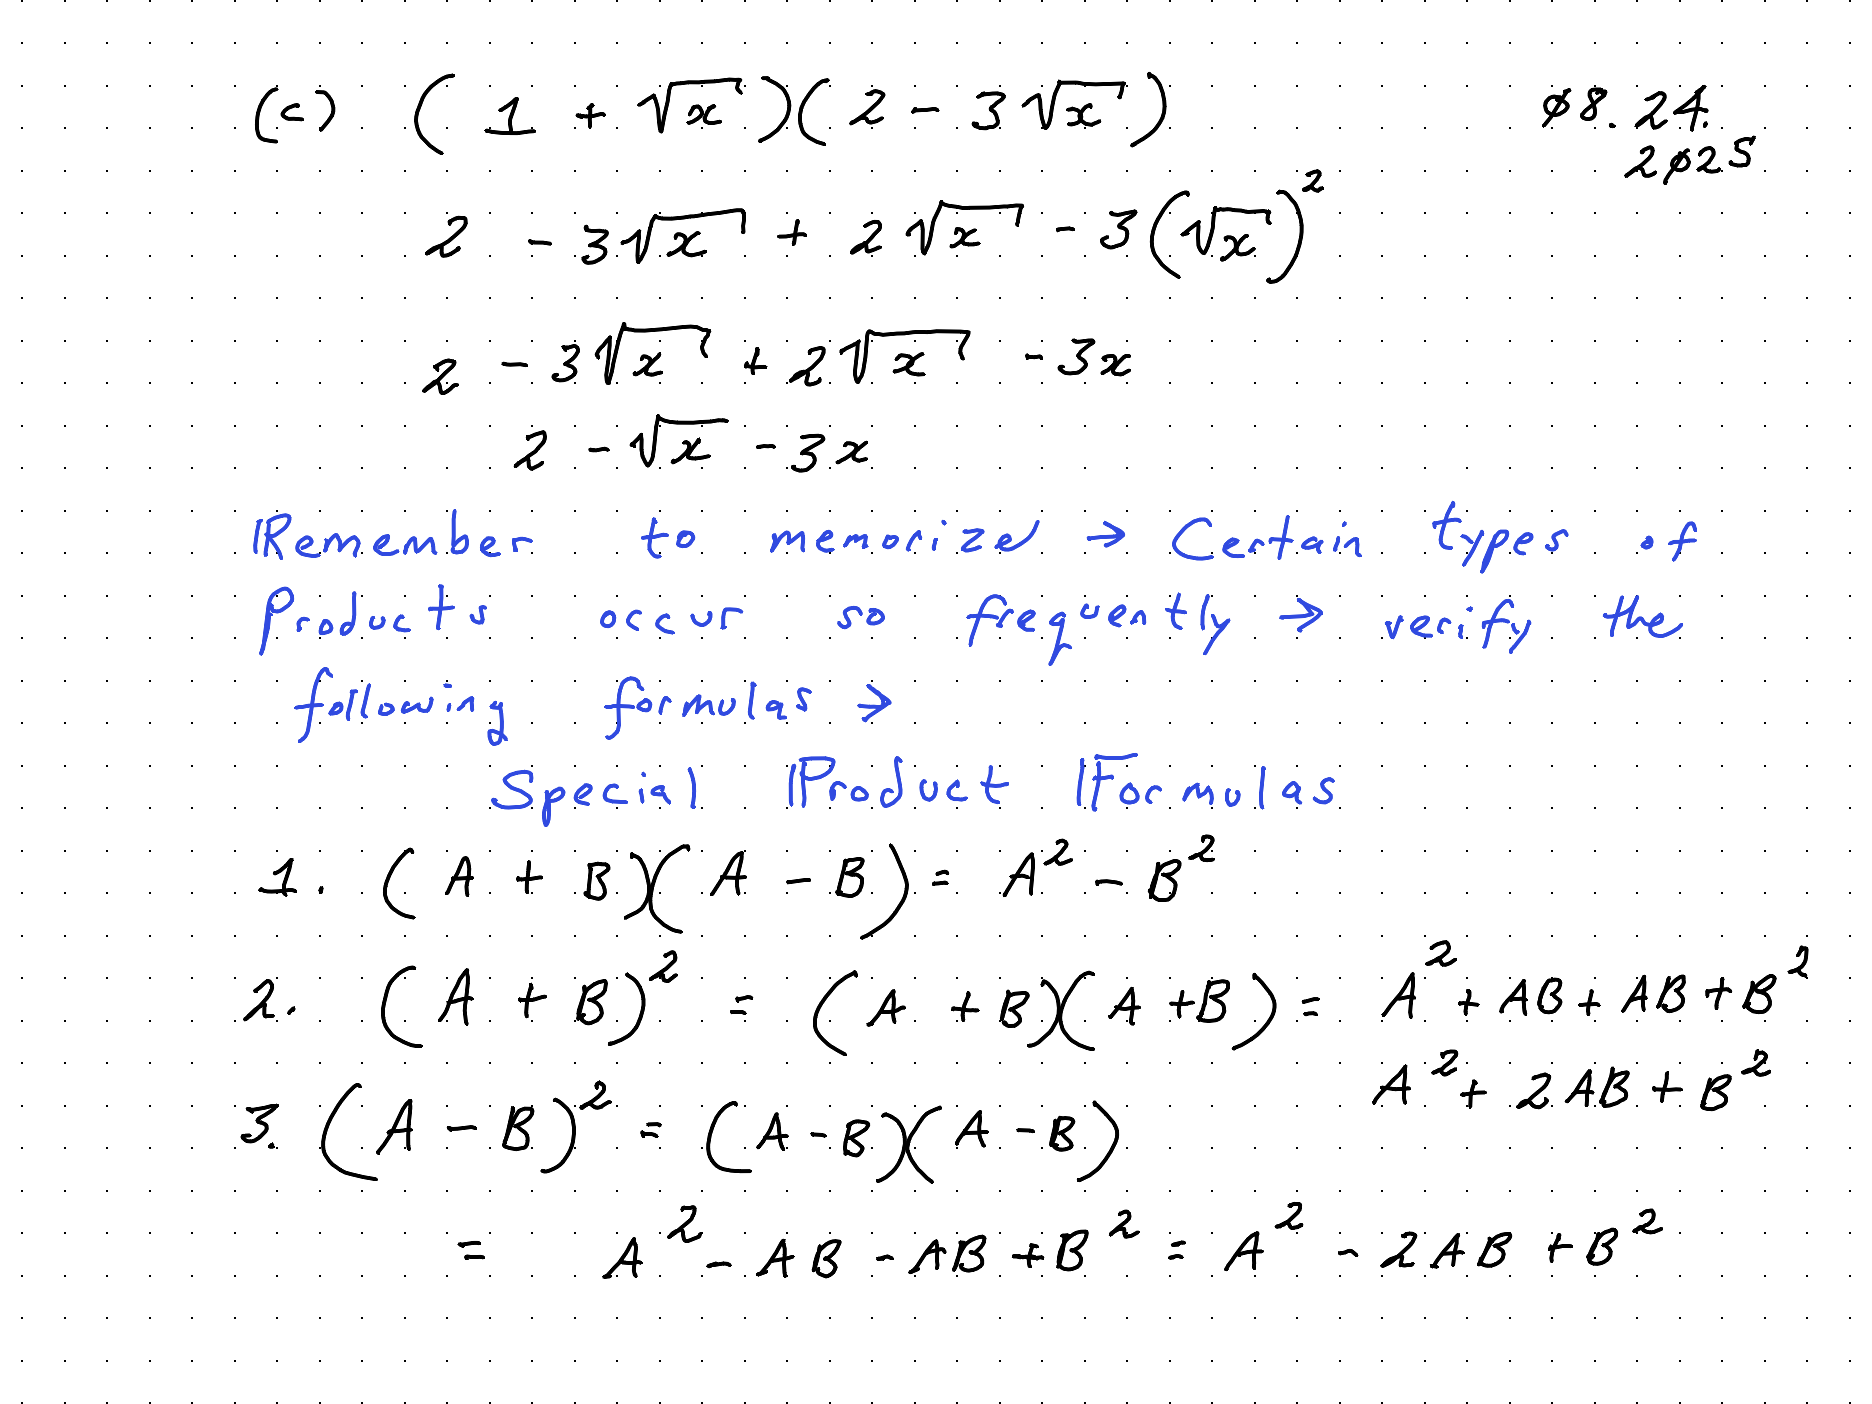 (c) (1 + √x)(2 - 3√x) ø8.24.
2ø25
2 - 3√x + 2√x - 3(√x)²
2 - 3√x + 2√x - 3x
2 - √x - 3x
Remember to memorize → Certain types of
Products occur so frequently → verify the
following formulas →
Special Product Formulas
1. (A + B)(A - B) = A² - B²
2. (A + B)² = (A + B)(A + B) = A² + AB + AB + B²
A² + 2AB + B²
3. (A - B)² = (A - B)(A - B)
= A² - AB - AB + B² = A² - 2AB + B²